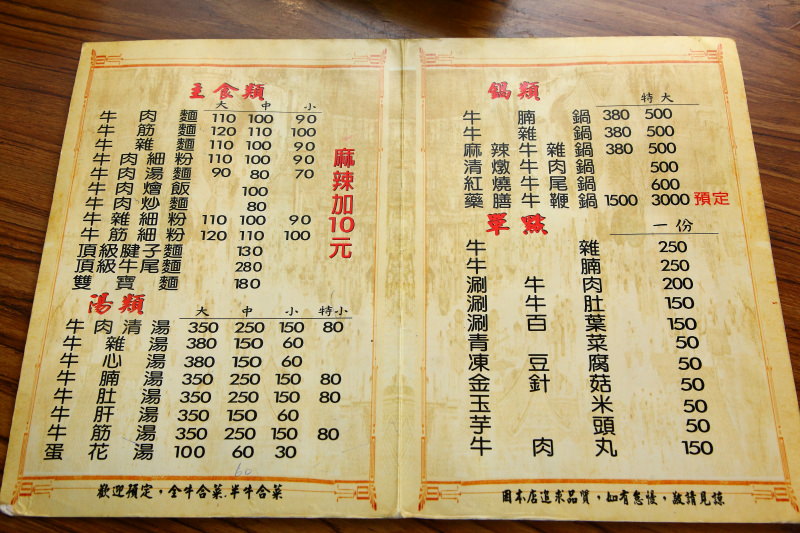 主食類
大 中 小
牛肉麵 110 100 90
牛筋麵 120 110 100
牛雜麵 110 100 90
牛肉細粉 110 100 90
牛肉湯麵 90 80 70
牛肉燴飯 100
牛肉炒麵 80
牛雜細粉 110 100 90
牛筋細粉 120 110 100
頂級腱子麵 130
頂級牛尾麵 280
雙寶麵 180
麻辣加10元
湯類
大 中 小 特小
牛肉清湯 350 250 150 80
牛雜湯 380 150 60
牛心湯 380 150 60
牛腩湯 350 250 150 80
牛肚湯 350 250 150 80
牛肝湯 350 150 60
牛筋湯 350 250 150 80
蛋花湯 100 60 30
60
歡迎預定，全牛合菜.半牛合菜
鍋類
特大
牛腩鍋 380 500
牛雜鍋 380 500
麻辣牛雜鍋 380 500
清燉牛肉鍋 500
紅燒牛尾鍋 600
藥膳牛鞭鍋 1500 3000 預定
單點
一份
牛雜 250
牛腩 250
涮牛肉 200
涮牛肚 150
涮百葉 150
青菜 50
凍豆腐 50
金針菇 50
玉米 50
芋頭 50
牛肉丸 150
因本店追求品質，如有怠慢，敬請見諒